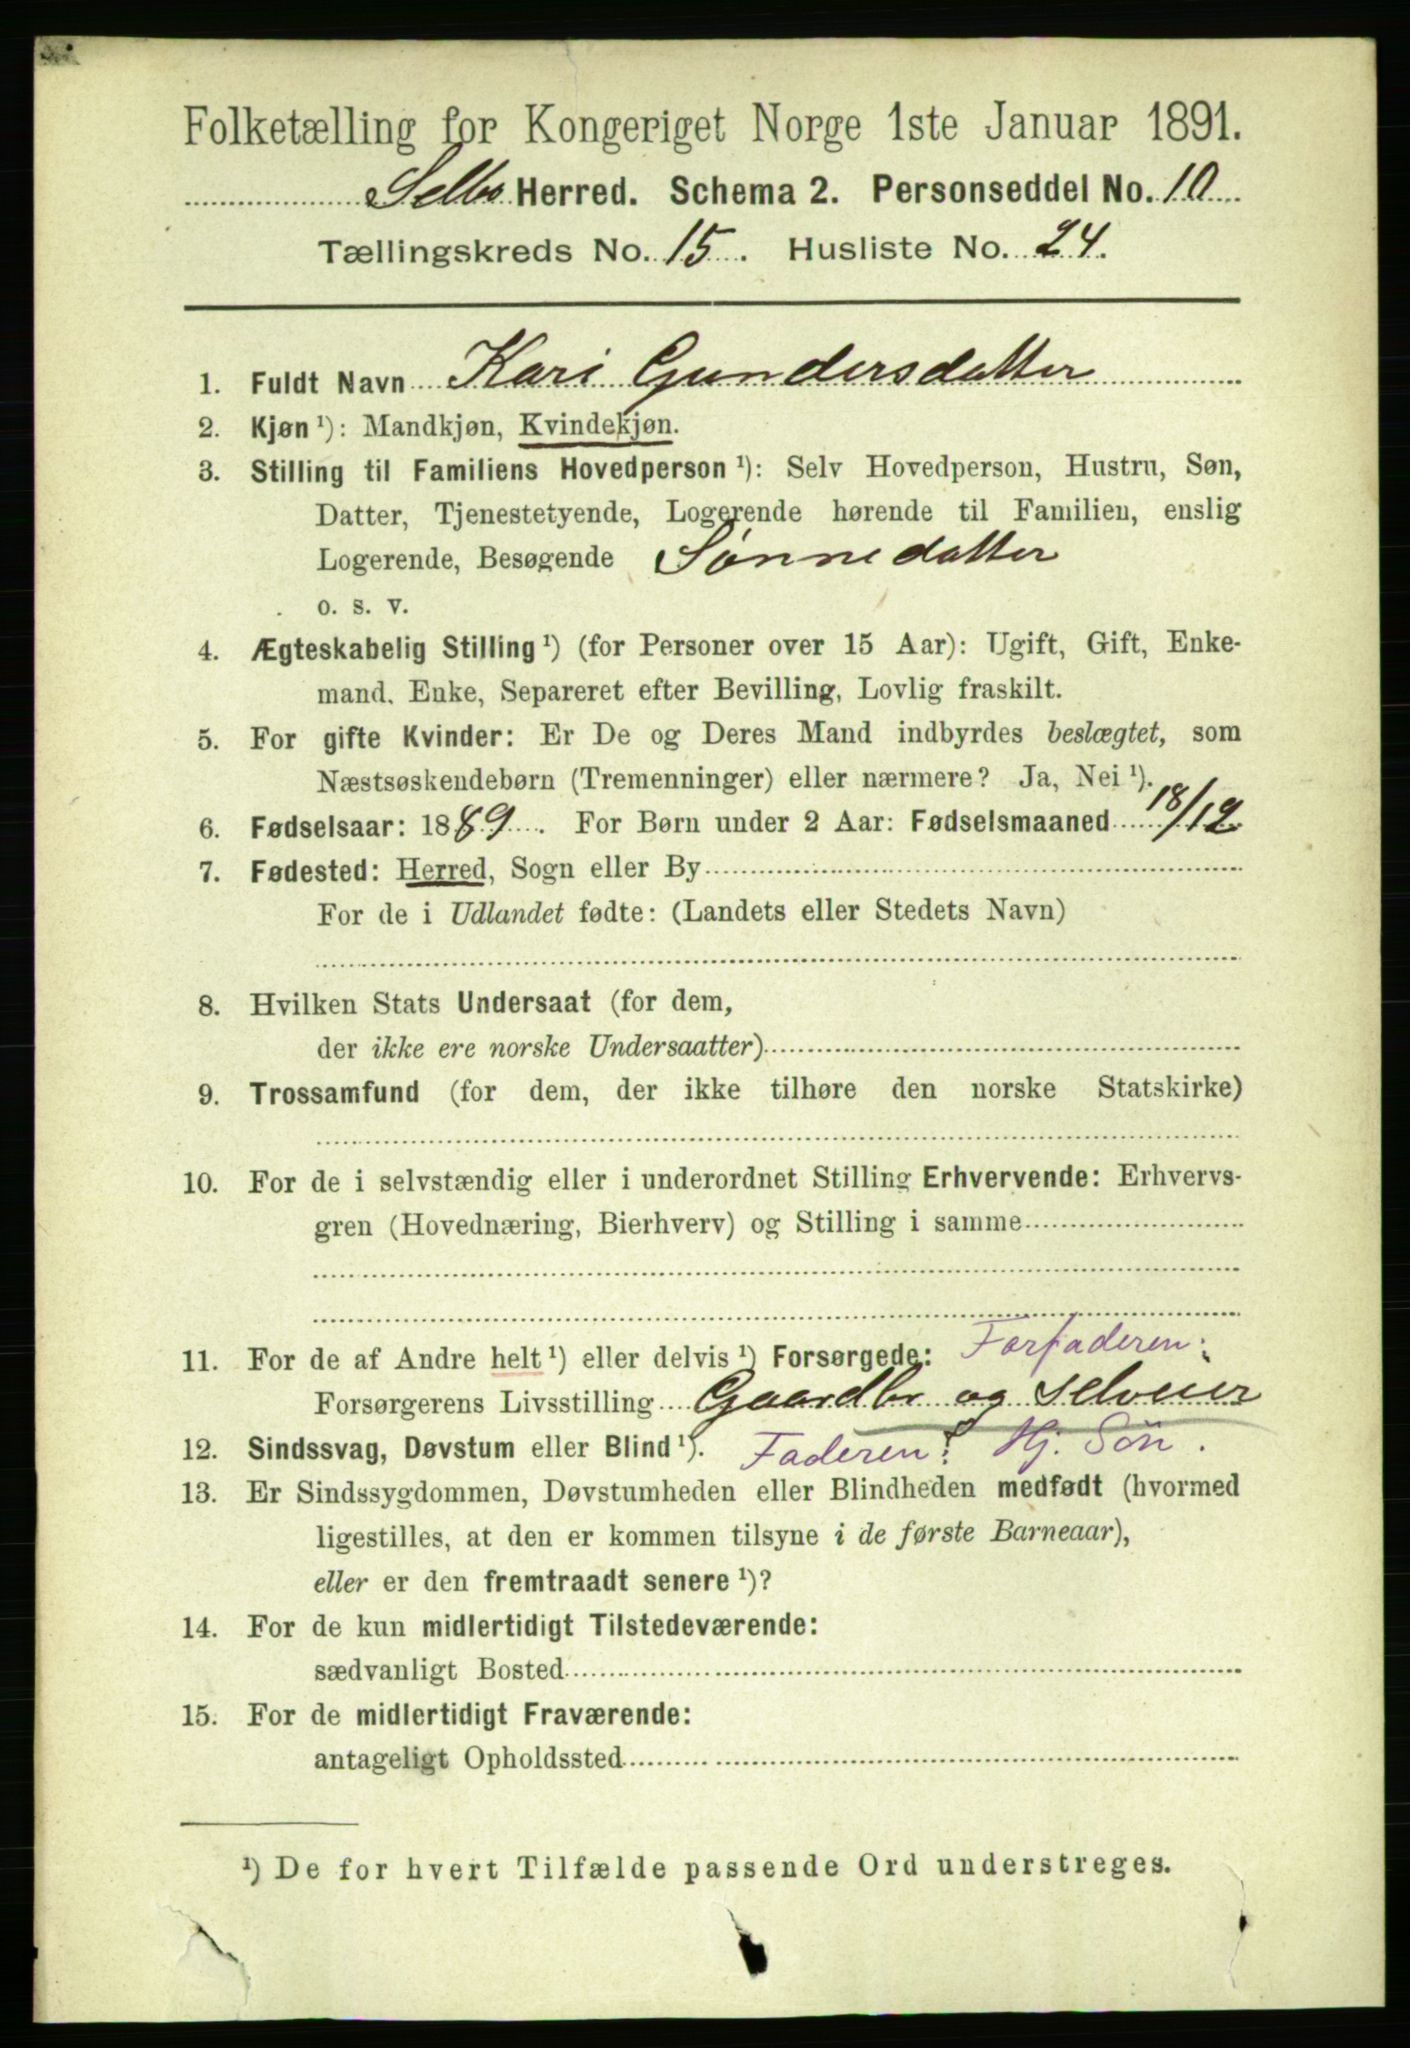 Folketælling for Kongeriget Norge 1ste Januar 1891.
Selbo Herred. Schema 2. Personseddel No. 10
Tællingskreds No. 15. Husliste No. 24.
1. Fuldt Navn Kari Gundersdatter
2. Kjøn ¹): Mandkjøn, Kvindekjøn.
3. Stilling til Familiens Hovedperson ¹): Selv Hovedperson, Hustru, Søn,
Datter, Tjenestetyende, Logerende hørende til Familien, enslig
Logerende, Besøgende Sønnedatter
o. s. v.
4. Ægteskabelig Stilling ¹) (for Personer over 15 Aar): Ugift, Gift, Enke-
mand, Enke, Separeret efter Bevilling, Lovlig fraskilt.
5. For gifte Kvinder: Er De og Deres Mand indbyrdes beslægtet, som
Næstsøskendebørn (Tremenninger) eller nærmere? Ja, Nei ¹).
6. Fødselsaar: 1889. For Børn under 2 Aar: Fødselsmaaned 18/12
7. Fødested: Herred, Sogn eller By
For de i Udlandet fødte: (Landets eller Stedets Navn)
8. Hvilken Stats Undersaat (for dem,
der ikke ere norske Undersaatter)
9. Trossamfund (for dem, der ikke tilhøre den norske Statskirke)
10. For de i selvstændig eller i underordnet Stilling Erhvervende: Erhvervs-
gren (Hovednæring, Bierhverv) og Stilling i samme
11. For de af Andre helt ¹) eller delvis ¹) Forsørgede: Farfaderen:
Forsørgerens Livsstilling Gaardbr og Selveier
12. Sindssvag, Døvstum eller Blind ¹). Faderen: Hj. Søn.
13. Er Sindssygdommen, Døvstumheden eller Blindheden medfødt (hvormed
ligestilles, at den er kommen tilsyne i de første Barneaar),
eller er den fremtraadt senere ¹)?
14. For de kun midlertidigt Tilstedeværende:
sædvanligt Bosted
15. For de midlertidigt Fraværende:
antageligt Opholdssted
¹) De for hvert Tilfælde passende Ord understreges.